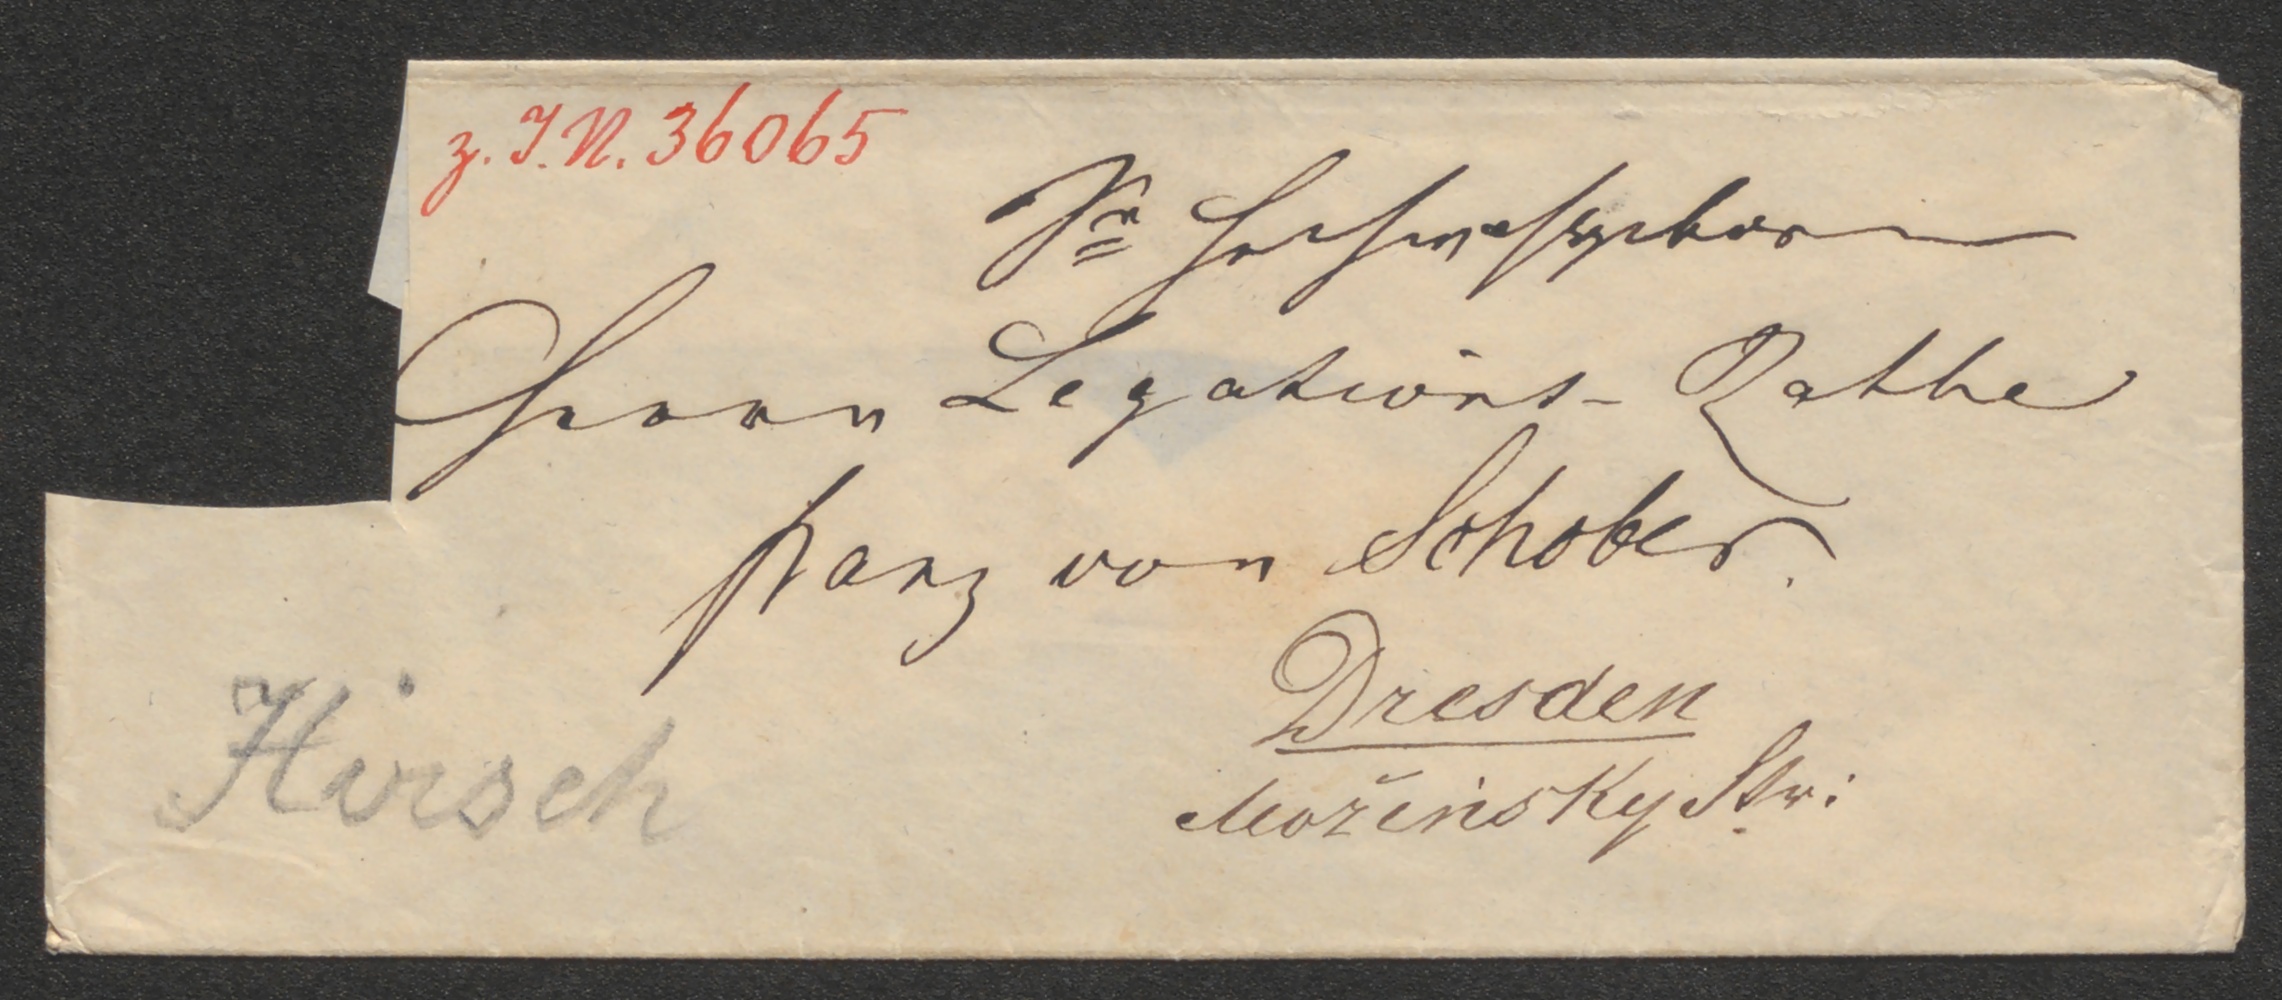 z. I. N. 36065
Sr Hochwohlgeboren
Herrn Legations-Rathe
Franz von Schober.
Dresden
Možinsky Str:
Hirsch